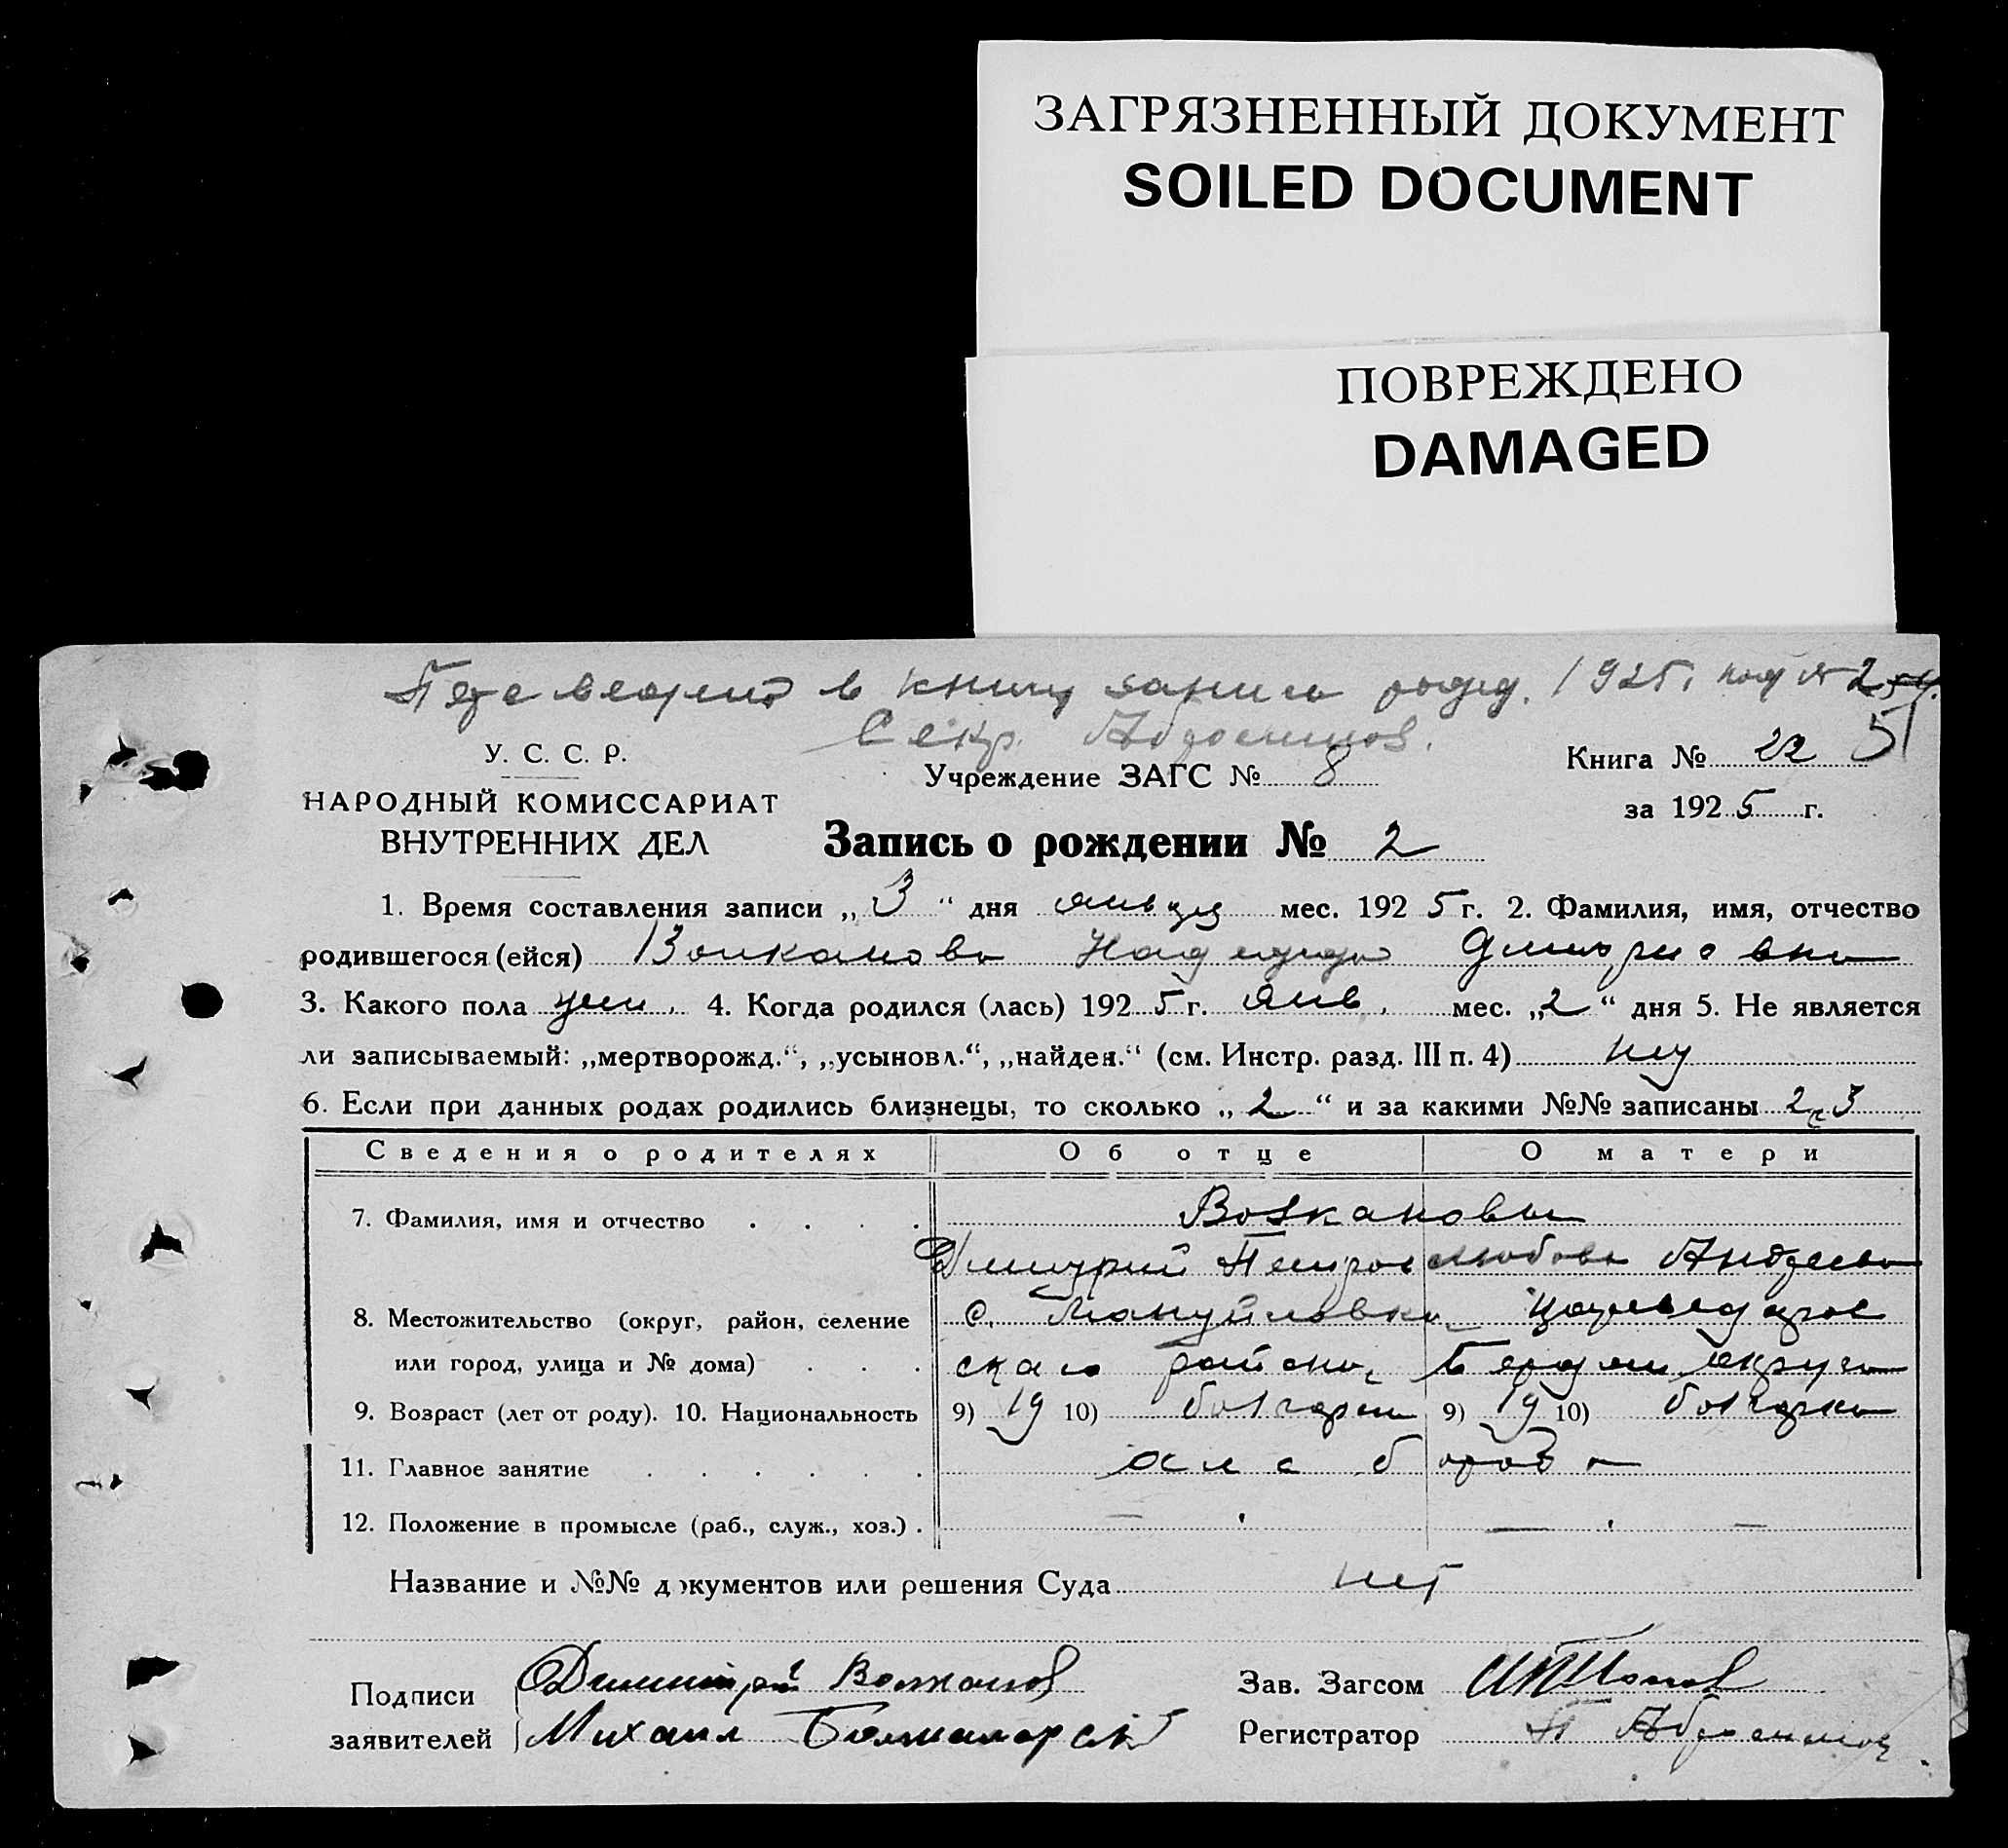 ЗАГРЯЗНЕННЫЙ ДОКУМЕНТ
SOILED DOCUMENT
ПОВРЕЖДЕНО
DAMAGED
в книгу записи рожд. 1925, под №
Секр. Абросимов.
51
У. С. С. Р.
НАРОДНЫЙ КОМИССАРИАТ
ВНУТРЕННИХ ДЕЛ
Учреждение ЗАГС № 8
Книга № 22
за 1925 г.
Запись о рождении № 2
1. Время составления записи „3“ дня января мес. 1925 г. 2. Фамилия, имя, отчество
родившегося (ейся) Волканова Надежда Дмитриевна
3. Какого пола жен. 4. Когда родился (лась) 1925 г. Янв. мес. „2“ дня 5. Не является
ли записываемый: „мертворожд.“, „усыновл.“, „найден.“ (см. Инстр. разд. III п. 4) нет
6. Если при данных родах родились близнецы, то сколько „2“ и за какими №№ записаны 2 и 3
Сведения о родителях Об отце О матери
7. Фамилия, имя и отчество . . . . Волкановы
Дмитрий Петров Любовь Андреева
8. Местожительство (округ, район, селение с. Мануйловка Цареводаров
или город, улица и № дома) . . . ского района, Бердян. округа
9. Возраст (лет от роду). 10. Национальность 9) 19 10) болгарин 9) 19 10) болгарка
11. Главное занятие . . . . . . хлебороб
12. Положение в промысле (раб., служ., хоз.) . — —
Название и №№ документов или решения Суда нет
Подписи Димитрий Волканов Зав. Загсом Попов
заявителей Михаил Регистратор П Абросимов